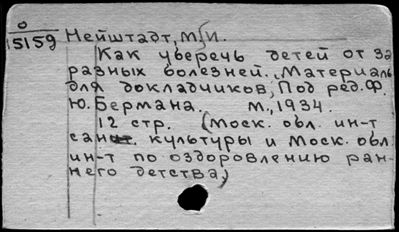 О
15159 Нейштадт, М. И.
Как уберечь детей от за
разных болезней. Материалы
для докладчиков, Под ред. Ф.
Ю. Бермана. М., 1934.
12 стр. (Моск. обл. ин-т
сан. культуры и Моск. обл.
ин-т по оздоровлению ран-
него детства)